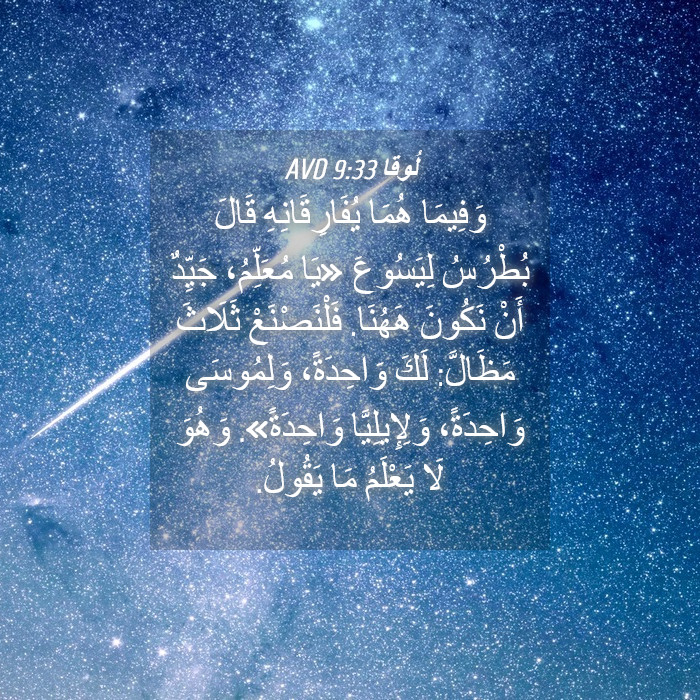 لُوقا 9:33 AVD
وَفِيمَا هُمَا يُفَارِقَانِهِ قَالَ
بُطْرُسُ لِيَسُوعَ «يَا مُعَلِّمُ، جَيِّدٌ
أَنْ نَكُونَ هَهُنَا. فَلْنَصْنَعْ ثَلَاثَ
مَظَالَّ: لَكَ وَاحِدَةً، وَلِمُوسَى
وَاحِدَةً، وَلِإِيلِيَّا وَاحِدَةً». وَهُوَ
لَا يَعْلَمُ مَا يَقُولُ.